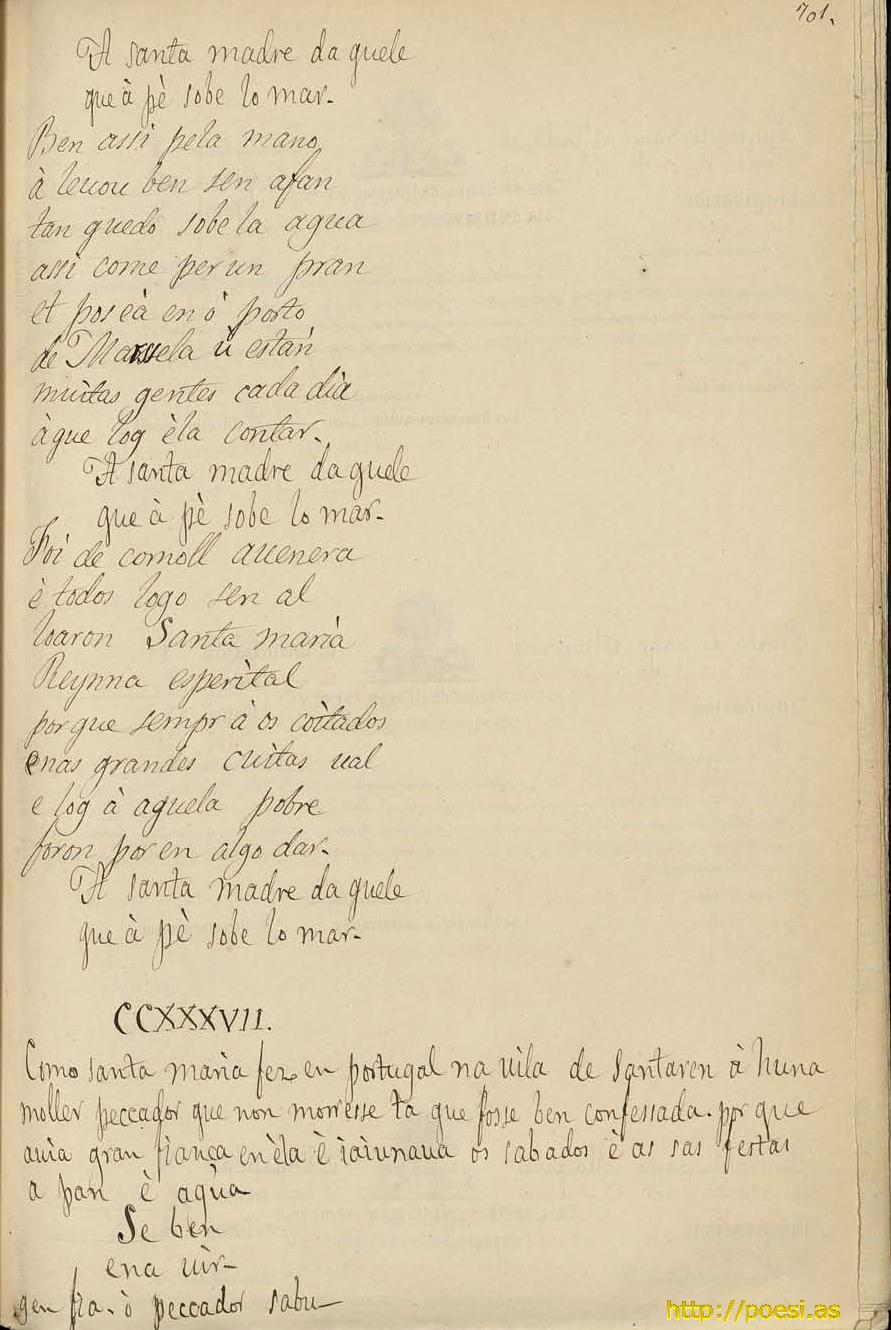 701.
A santa madre da quele
que à pè sobe lo mar-
Ben assi pela mano
à leuou ben sen afan
tan quedo sobe la agua
assi come per un pran
et pos eà en o porto
de Marssela ù están
muitas gentes cada dìa
à que log èla contar.
A santa madre da quele
que à pè sobe lo mar-
Foi de comoll auenera
è todos logo sen al
loaron Santa marìa
Reynna esperìtal
por que sempr à os coìtados
enas grandes cuìtas ual
e log à aquela pobre
foron por en algo dar-
A santa madre da quele
que à pè sobe lo mar-
CCXXXVII.
Como santa marìa fez en portugal na uìla de santaren à huna
moller peccador que non morresse ta que fosse ben confessada. por que
auìa gran fiança en èla è iaiunaua os sabados è as sas festas
a pan è agùa
Se ben
ena uìr-
gen fia. ò peccador sabu-
http://poesi.as